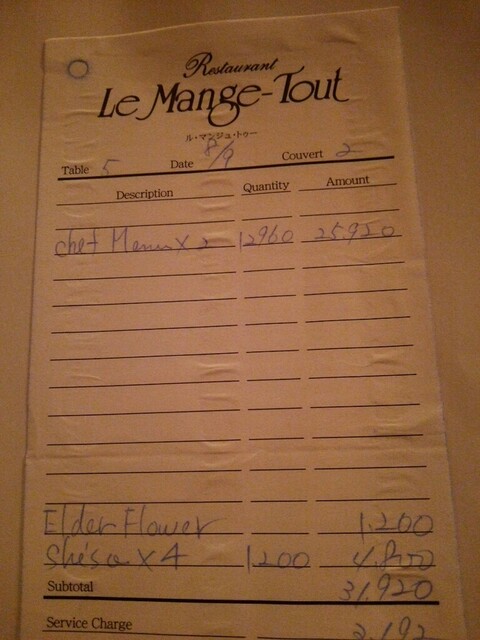 Restaurant
Le Mange-Tout
ル・マンジュ・トゥー
Table 5 Date 8/9 Couvert 2
Description Quantity Amount
chef Menu x 2 12960 25,920
Elder Flower 1,200
Shiso x 4 1200 4,800
Subtotal 31,920
Service Charge 3,192